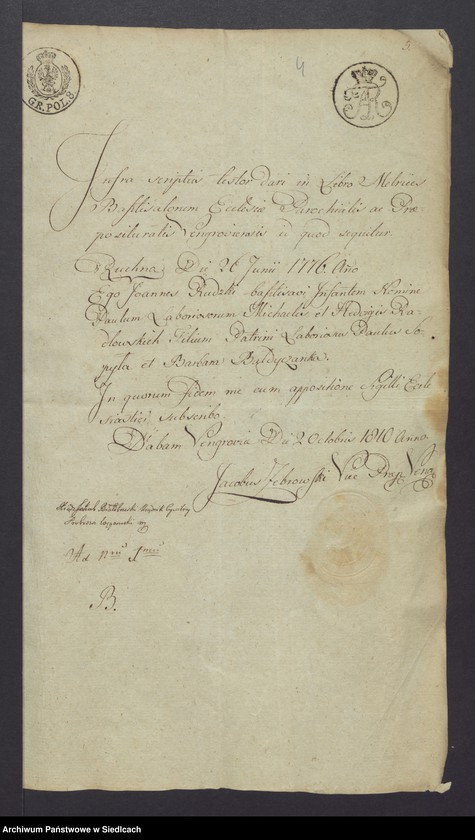 GR. POL. 8.
4
FA
Infra scriptus testor dari in Libro Metrices
Baptisatorum Ecclesiæ Parochialis ac Præ
posituralis Vengroviensis id quod sequitur.
Ruchna Die 26 Junii 1776 Ano
Ego Joannes Rudzki baptisavi Infantem Nomine
Paulum Laboriosorum Michaelis et Hedvigis Ra
dłowskich Filium Patrini Laboriosi Paulus So
pyła et Barbara Bąldyczanka.
In quorum fidem me cum appositione Sigilli Eccle
siastici subscribo.
Dabam Vengrovia Die 2 Octobris 1810 Anno
Jacobus Zebrowski Vice Præp Veng
Ad Nrũ 1mũ
B.
Archiwum Państwowe w Siedlcach